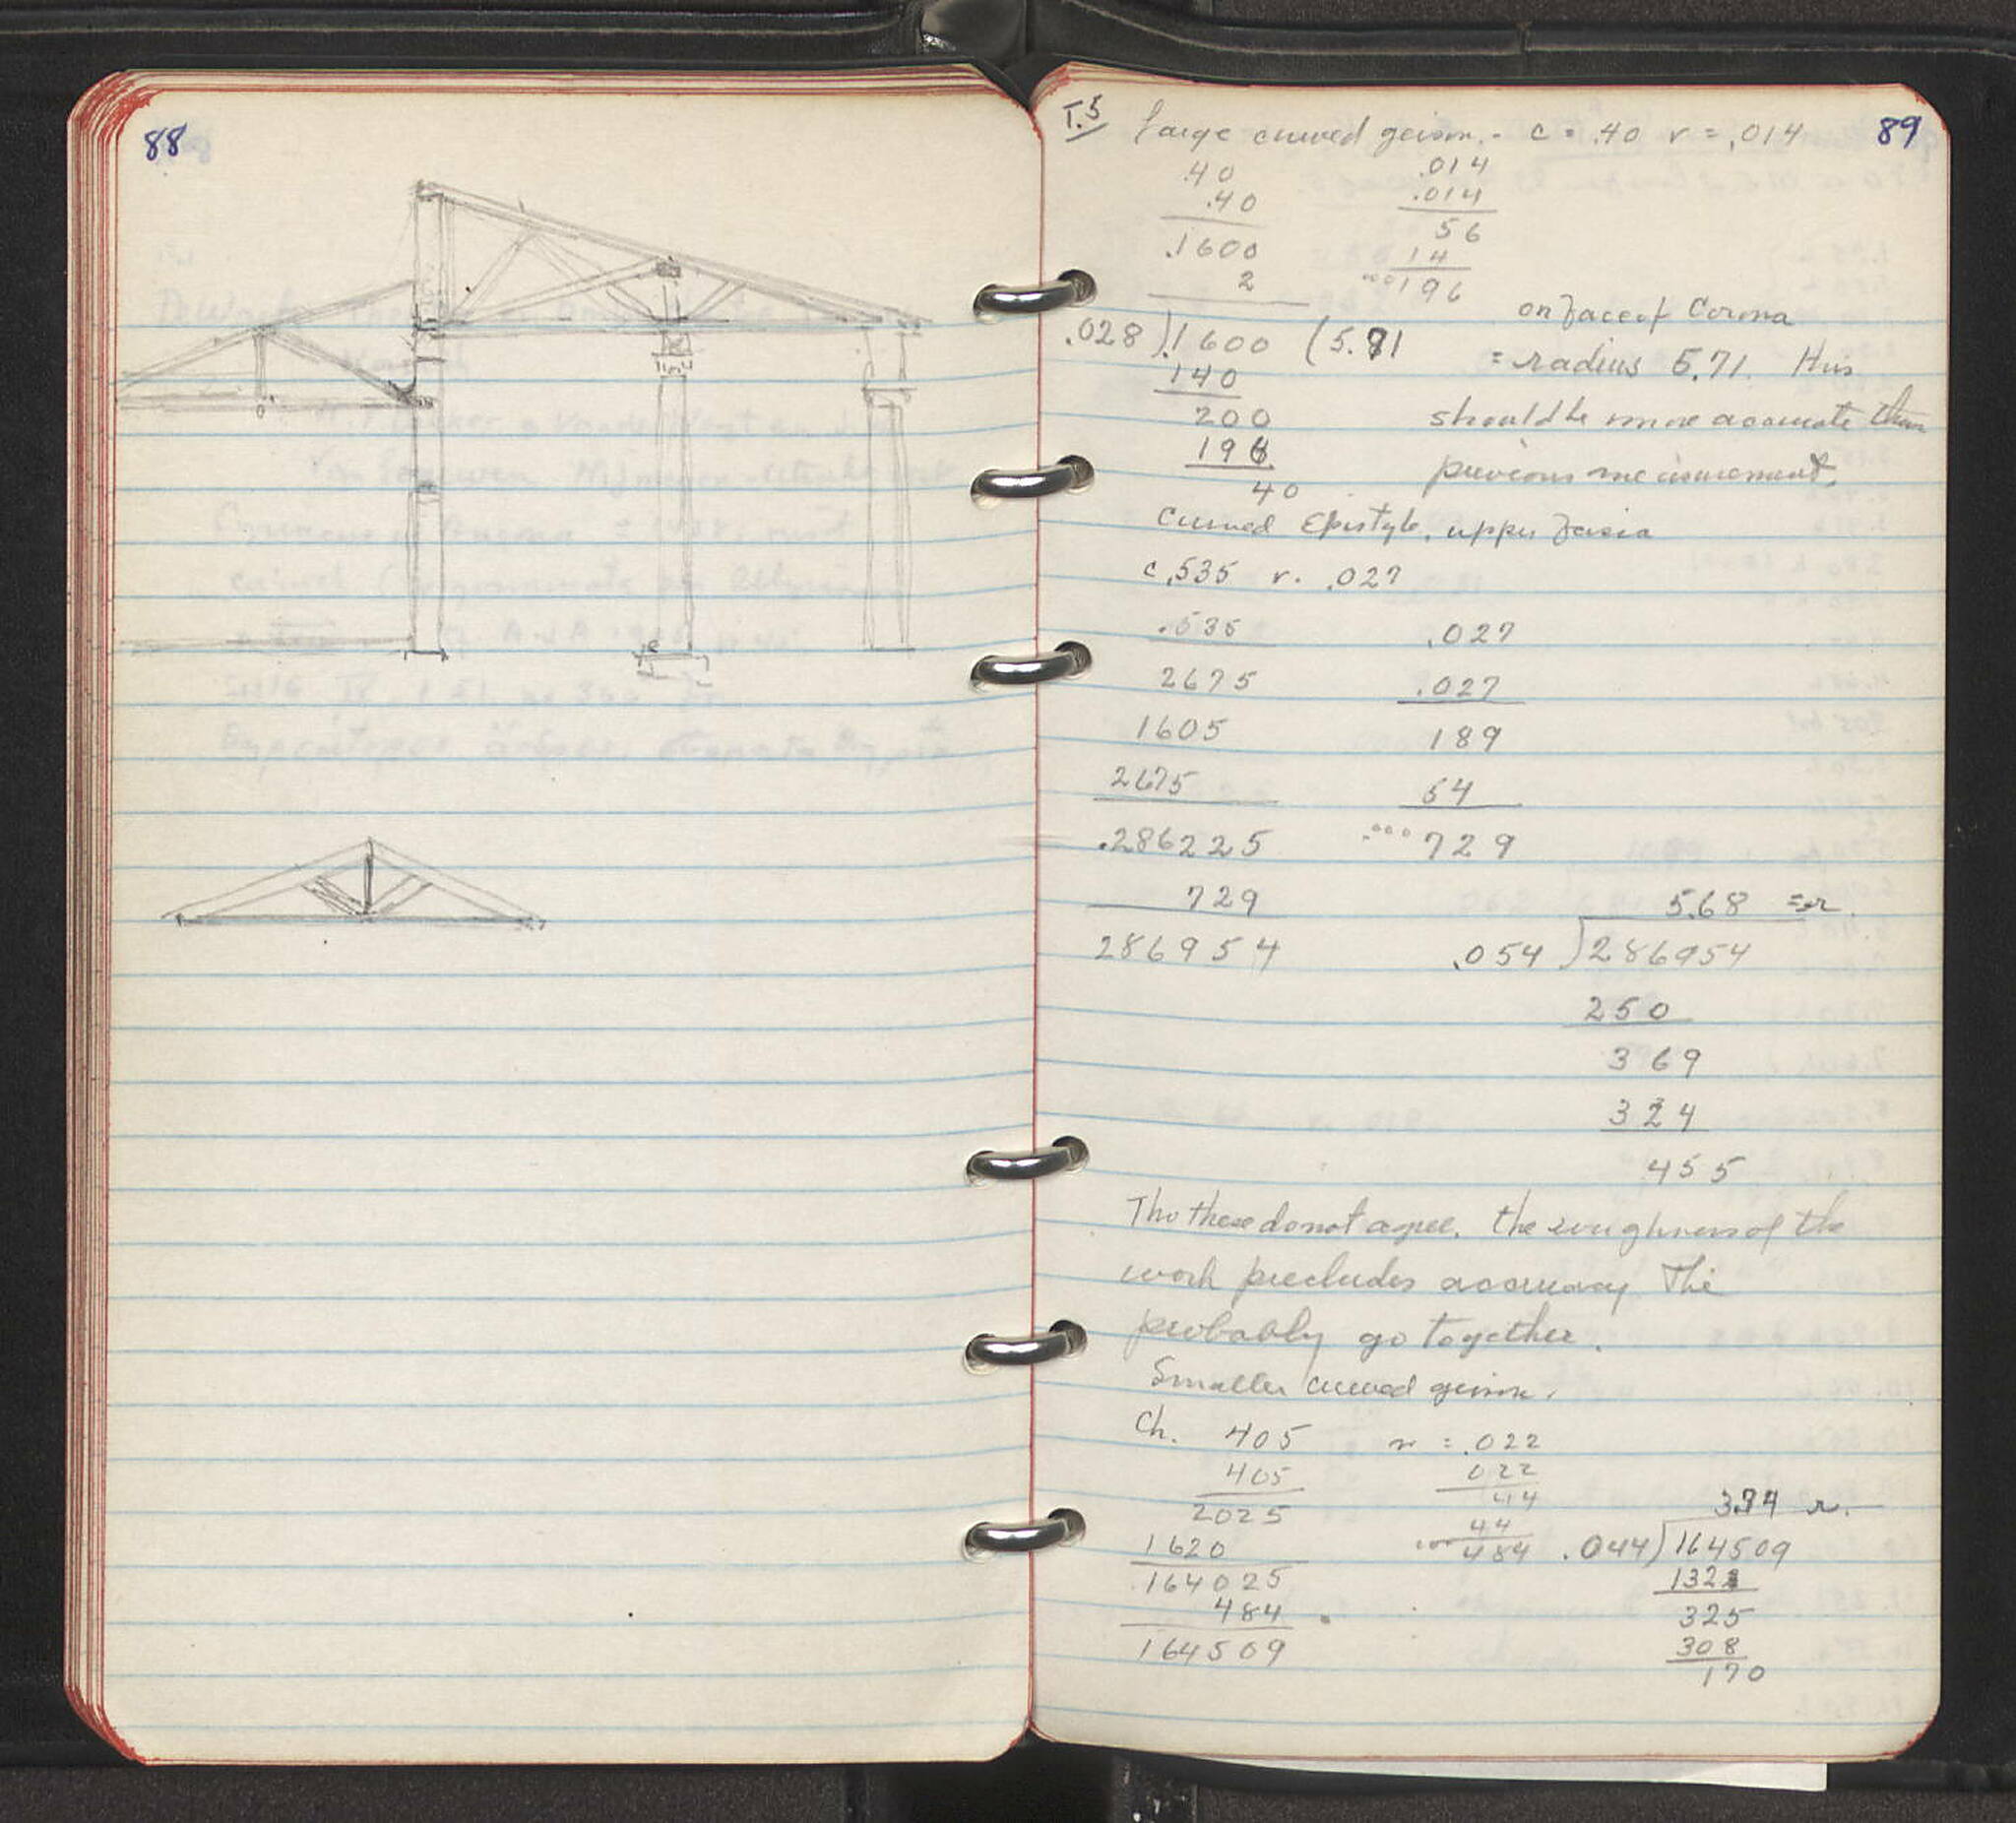 88
T.5 large curved geison. - c = .40 r = .014 89
.40 .014
.40 .014
.1600 56
2 14
000196
on face of Corona
.028).1600 (5.71
= radius 5.71. This
140
200 should be more accurate than
196
previous measurement.
40
Curved Epistyle, upper fascia
c .535 r. .027
.535 .027
2675 .027
1605 189
2675 54
.286225 .000729
729 5.68 = r.
286954 .054)286954
250
369
324
455
Tho these do not agree, the roughness of the
work precludes accuracy The
probably go together.
Smaller curved geison.
Ch. 405 r = .022
405 022
2025 44 3.74 r.
1620 44
484 .044)164509
164025 132
484 325
164509 308
170